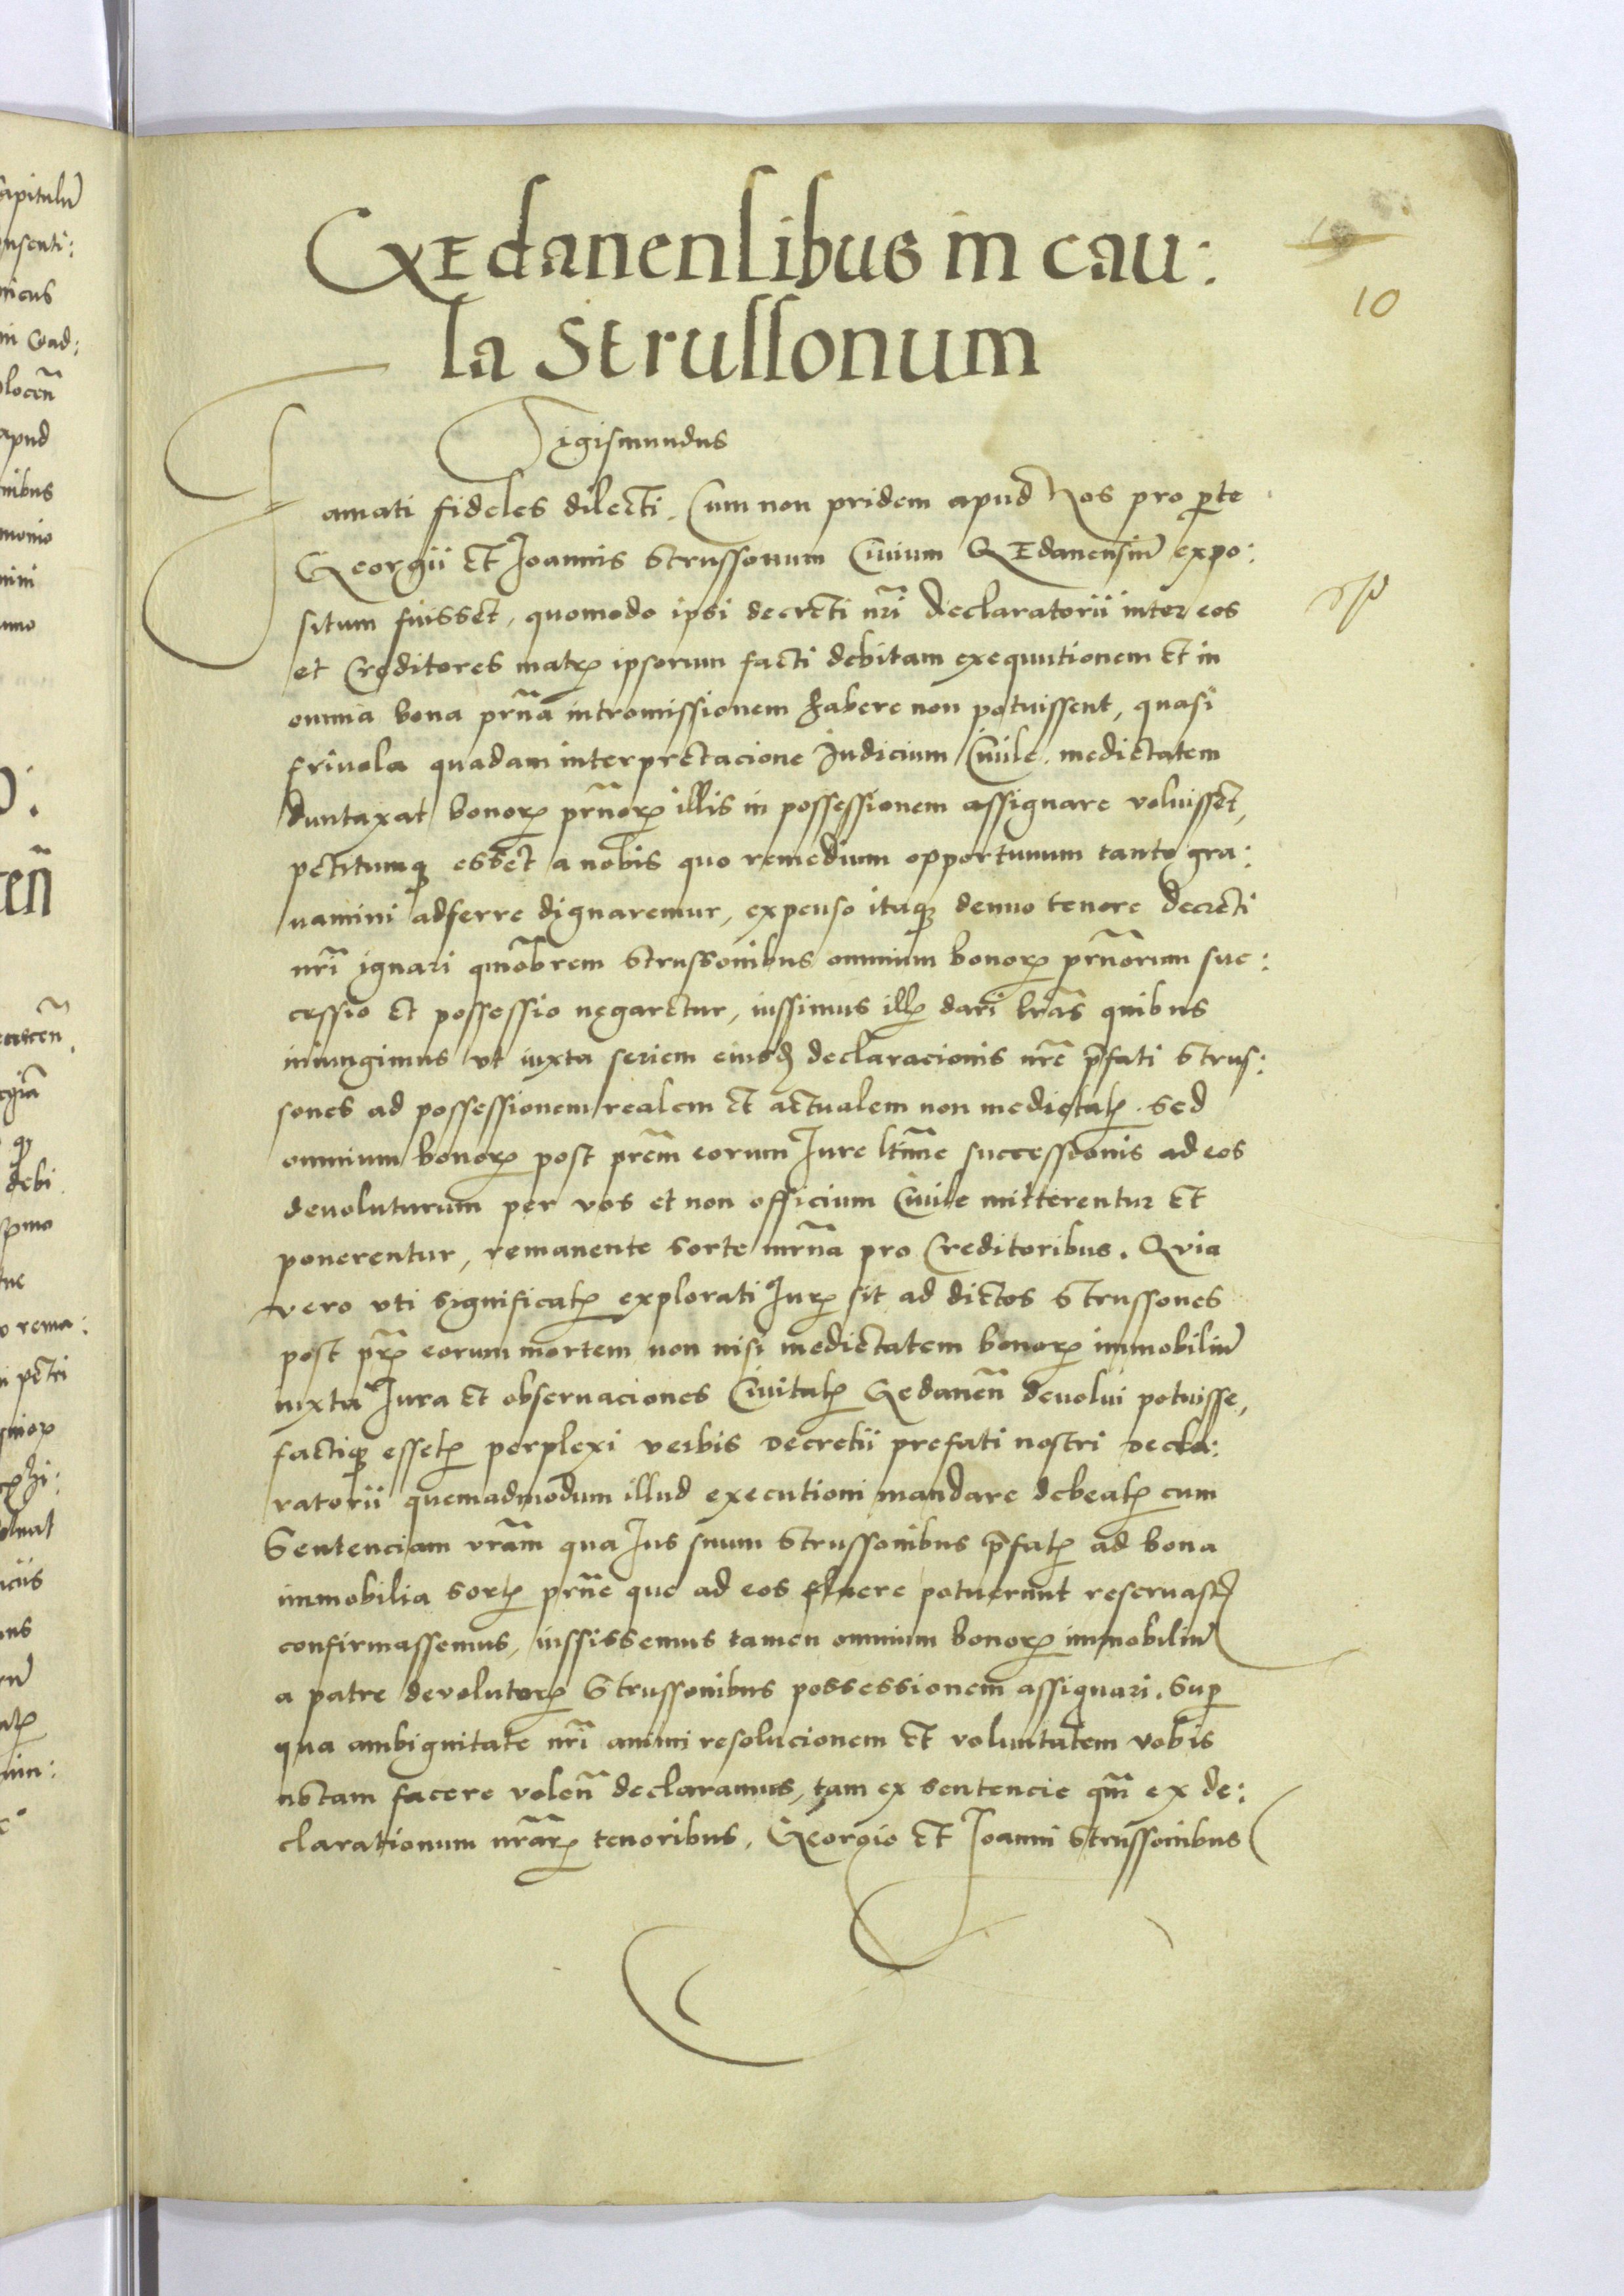 GEdanensibus in cau:
sa Strussonum
10
Sigismundus
Famati fideles dilecti. Cum non pridem apud Nos pro p̄te
Georgii et Joannis Strussonum Civium GEdanensiū expo:
situm fuisset, quomodo ipsi decreti nr̄i declaratorii inter eos
et Creditores matrꝭ ipsorum facti debitam exequutionem et in
omnia bona pr̄na intromissionem habere non potuissent, quasi
frivola quadam interpretacione Judicium Civile. medietatem
duntaxat bonorꝝ pr̄norꝝ illis in possessionem assignare voluisset,
petitumqꝫ esset a nobis quo remedium opportunum tanto gra:
vamini adferre dignaremur, expenso itaqꝫ denuo tenore decreti
nr̄i ignari qm̄obrem Strussonibus omnium bonorꝝ pr̄norum suc:
cessio et possessio negaretur, iussimus illꝭ dari lr̄as quibus
iniungimus ut iuxta seriem eiusdꝫ declaracionis nr̄e p̄fati Strus:
sones ad possessionem realem et actualem non medietatꝭ. sed
omnium bonorꝝ post pr̄em eorum Jure ltīme successionis ad eos
devoluturum per vos et non officium Civile mitterentur et
ponerentur, remanente sorte mr̄na pro Creditoribus. Quia
vero uti significatꝭ explorati Jurꝭ sit ad dictos Strussones
post pr̄ꝭ eorum mortem non nisi medietatem bonorꝝ immobiliū
iuxta Jura et observaciones Civitatꝭ Gedanen̄ devolui potuisse,
factiqꝫ essetꝭ perplexi verbis decretii prefati nostri decla:
ratorii quemadmodum illud executioni mandare debeatꝭ cum
Sentenciam vr̄am qua Jus suum Strussonibus p̄fatꝭ ad bona
immobilia sortꝭ pr̄ne que ad eos fluere potuerunt reservastꝭ
confirmassemus, iussissemus tamen omnium bonorꝝ immobiliū
a patre devolutorꝝ Strussonibus possessionem assignari. Sup̱
qua ambiguitate nr̄i animi resolucionem et voluntatem vobis
notam facere volen̄ declaramus, tam ex sentencie qm̄ ex de:
clarationum nr̄arꝝ tenoribus. Georgio et Joanni Strussonibus